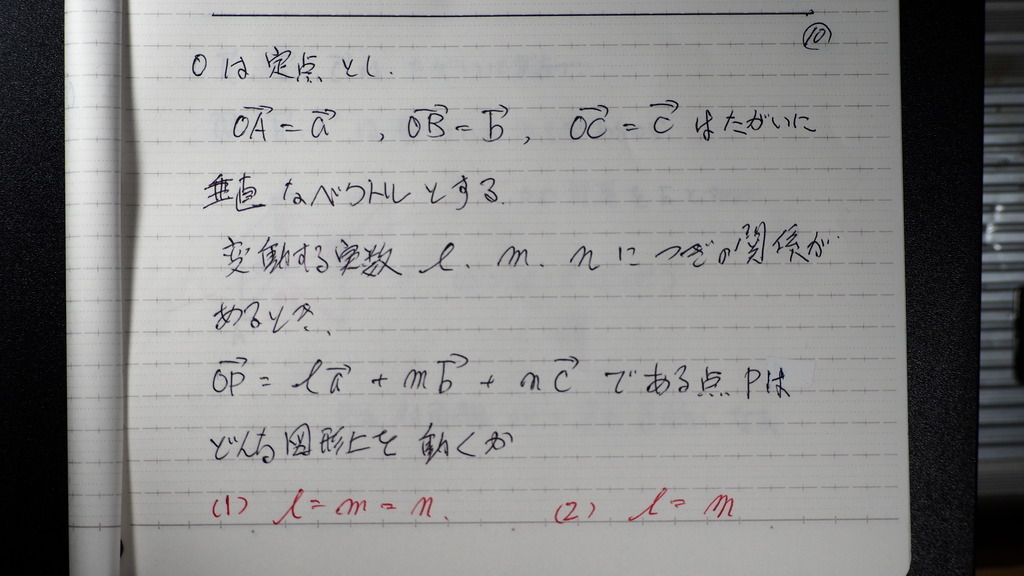 ⑩
Oは定点とし.
OA→ = a→ , OB→ = b→ , OC→ = c→ はたがいに
垂直なベクトルとする.
変動する実数 l. m. n につぎの関係が
あるとき、
OP→ = la→ + mb→ + nc→ である点Pは
どんな図形上を動くか
(1) l = m = n. (2) l = m